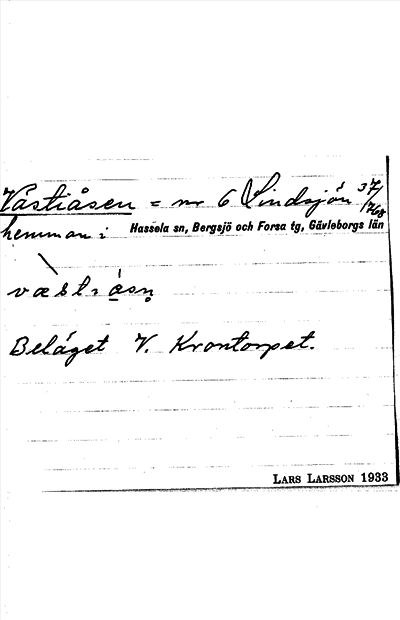 Västiåsen = nr 6 Lindsjön 37/768
hemman i Hassela sn, Bergsjö och Forsa tg, Gävleborgs län
Beläget V. Krontorpet.
LARS LARSSON 1933